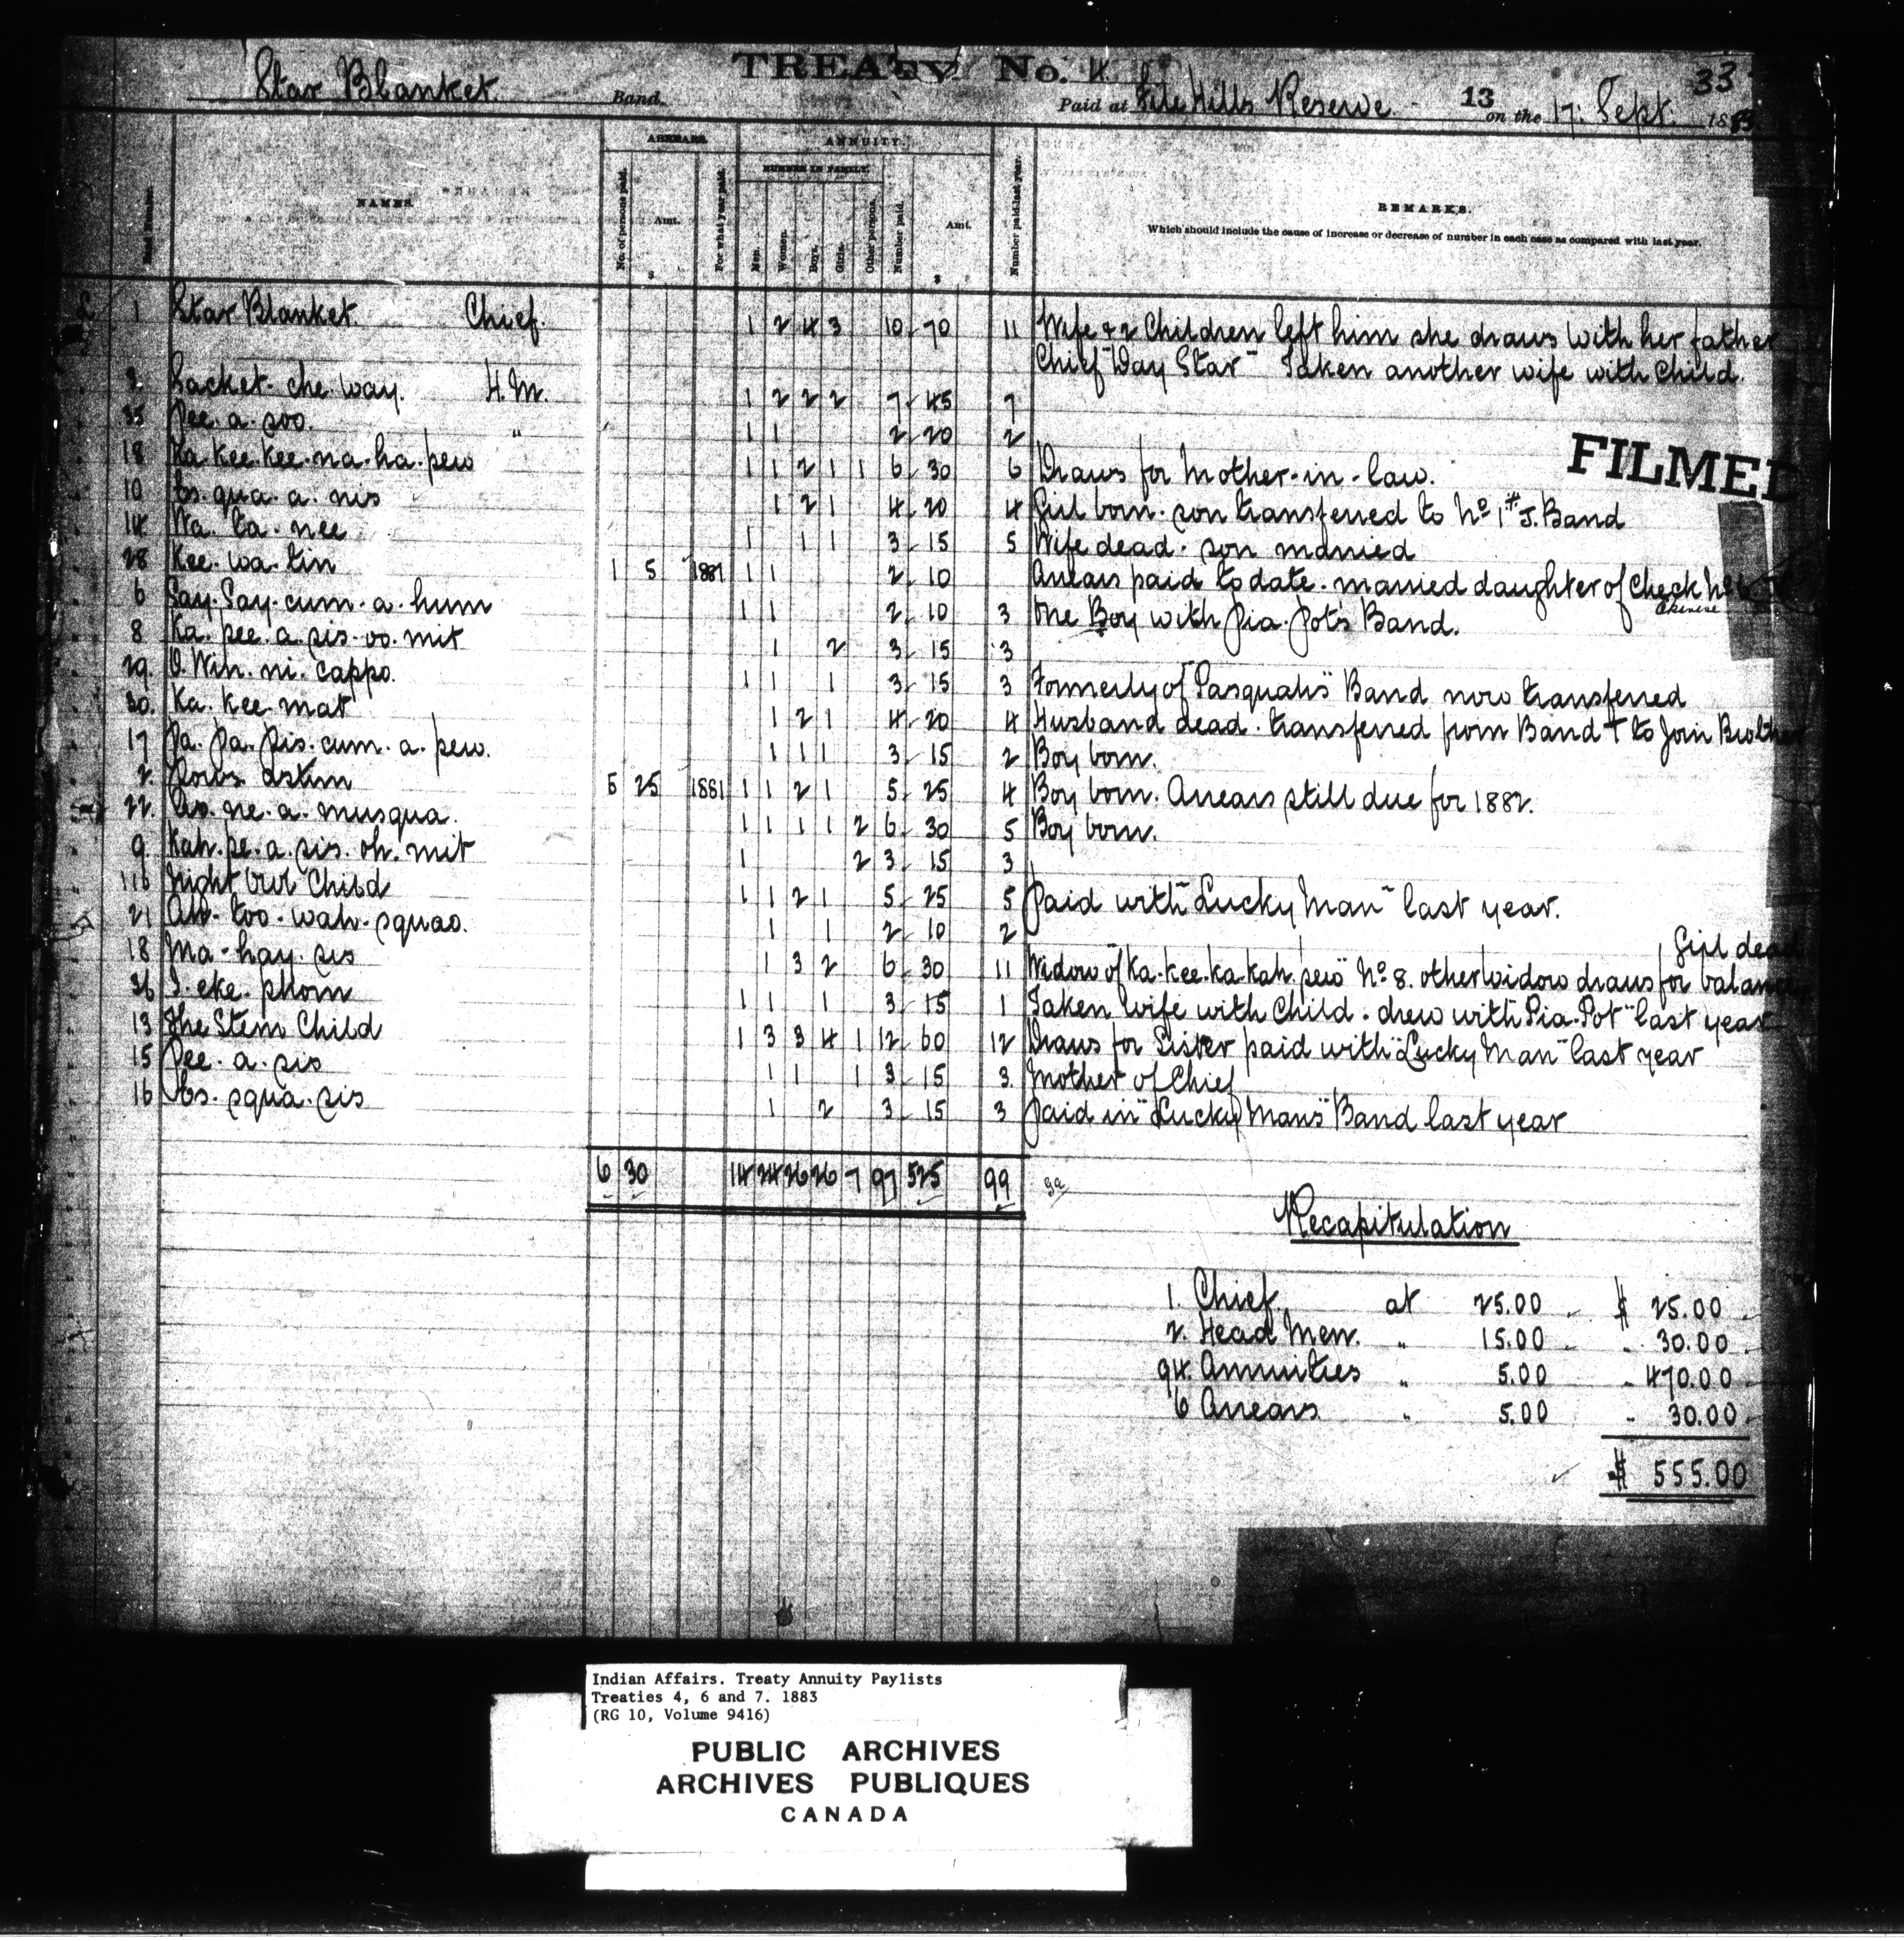 33
TREATY No. 4
Star Blanket Band. Paid at File Hills Reserve. 13 on the 17: Sept. 1883
ARREARS. ANNUITY.
NUMBER IN FAMILY.
Band Number. NAMES. No. of persons paid. Amt. $ For what year paid. Men. Women. Boys. Girls. Other persons. Number paid. Amt. $ Number paid last year. REMARKS.
Which should include the cause of increase or decrease of number in each case as compared with last year.
1 Star Blanket. Chief. 1 2 4 3 10 70 11 Wife & 2 Children left him she draws with her father
Chief "Day Star" Taken another wife with Child.
Sacket-che-way. H.M. 1 2 2 2 7 45 7
35 Pee.a.soo. " 1 1 2 20 2
FILMED
18 Ka.kee.kee.na.ha.pew 1 1 2 1 1 6 30 6 Draws for Mother-in-law.
10 Es.qua.a.nis 1 2 1 4 20 4 Girl born. son transferred to No 1 J. Band
14 Wa.ta.nee 1 1 1 3 15 5 Wife dead. son married
28 Kee.wa.tin 1 5 1881 1 1 2 10 Arrears paid to date. married daughter of Check No
6 Say.Say.cum.a.hum 1 1 2 10 3 One Boy with Pia.Pots Band.
8 Ka.pee.a.sis.oo.mit 1 2 3 15 3
29. O.Win.ni.cappo. 1 1 1 3 15 3 Formerly of "Pasquahs" Band now transferred
30. Ka.Kee.mat 1 2 1 4 20 4 Husband dead. transferred from Band T to Join Brother
17 Pa.Pa.Pis.cum.a.pew. 1 1 1 3 15 2 Boy born.
2. astim 5 25 1881 1 1 2 1 5 25 4 Boy born. Arrears still due for 1882.
22. As.ne.a.musqua. 1 1 1 1 2 6 30 5 Boy born.
9. Kah.pe.a.sis.oh.mit 1 2 3 15 3
116 Night Owl Child 1 1 2 1 5 25 5 Paid with "Lucky Man" last year.
21 Ah-too-wah-squao. 1 1 2 10 2
Girl dead
18 Ma-hay.sis 1 3 2 6 30 11 Widow of "Ka-kee-ka-kah.pew" No 8. other widow draws for balance
36 I.eke.phom 1 1 1 3 15 1 Taken Wife with Child. drew with "Pia-Pot" last year
13 The Stem Child 1 3 3 4 1 12 60 12 Draws for Sister paid with "Lucky Man" last year
15 Pee.a.sis 1 1 1 3 15 3. Mother of Chief
16 Es.squa.sis 1 2 3 15 3 Paid in "Lucky Mans" Band last year
6 30 14 24 26 26 7 97 525 99
Recapitulation
1. Chief at 25.00 $ 25.00
2. Head Men. " 15.00 " 30.00
94. Annuities " 5.00 " 470.00
6 Arrears " 5.00 " 30.00
$ 555.00
Indian Affairs. Treaty Annuity Paylists
Treaties 4, 6 and 7. 1883
(RG 10, Volume 9416)
PUBLIC ARCHIVES
ARCHIVES PUBLIQUES
CANADA